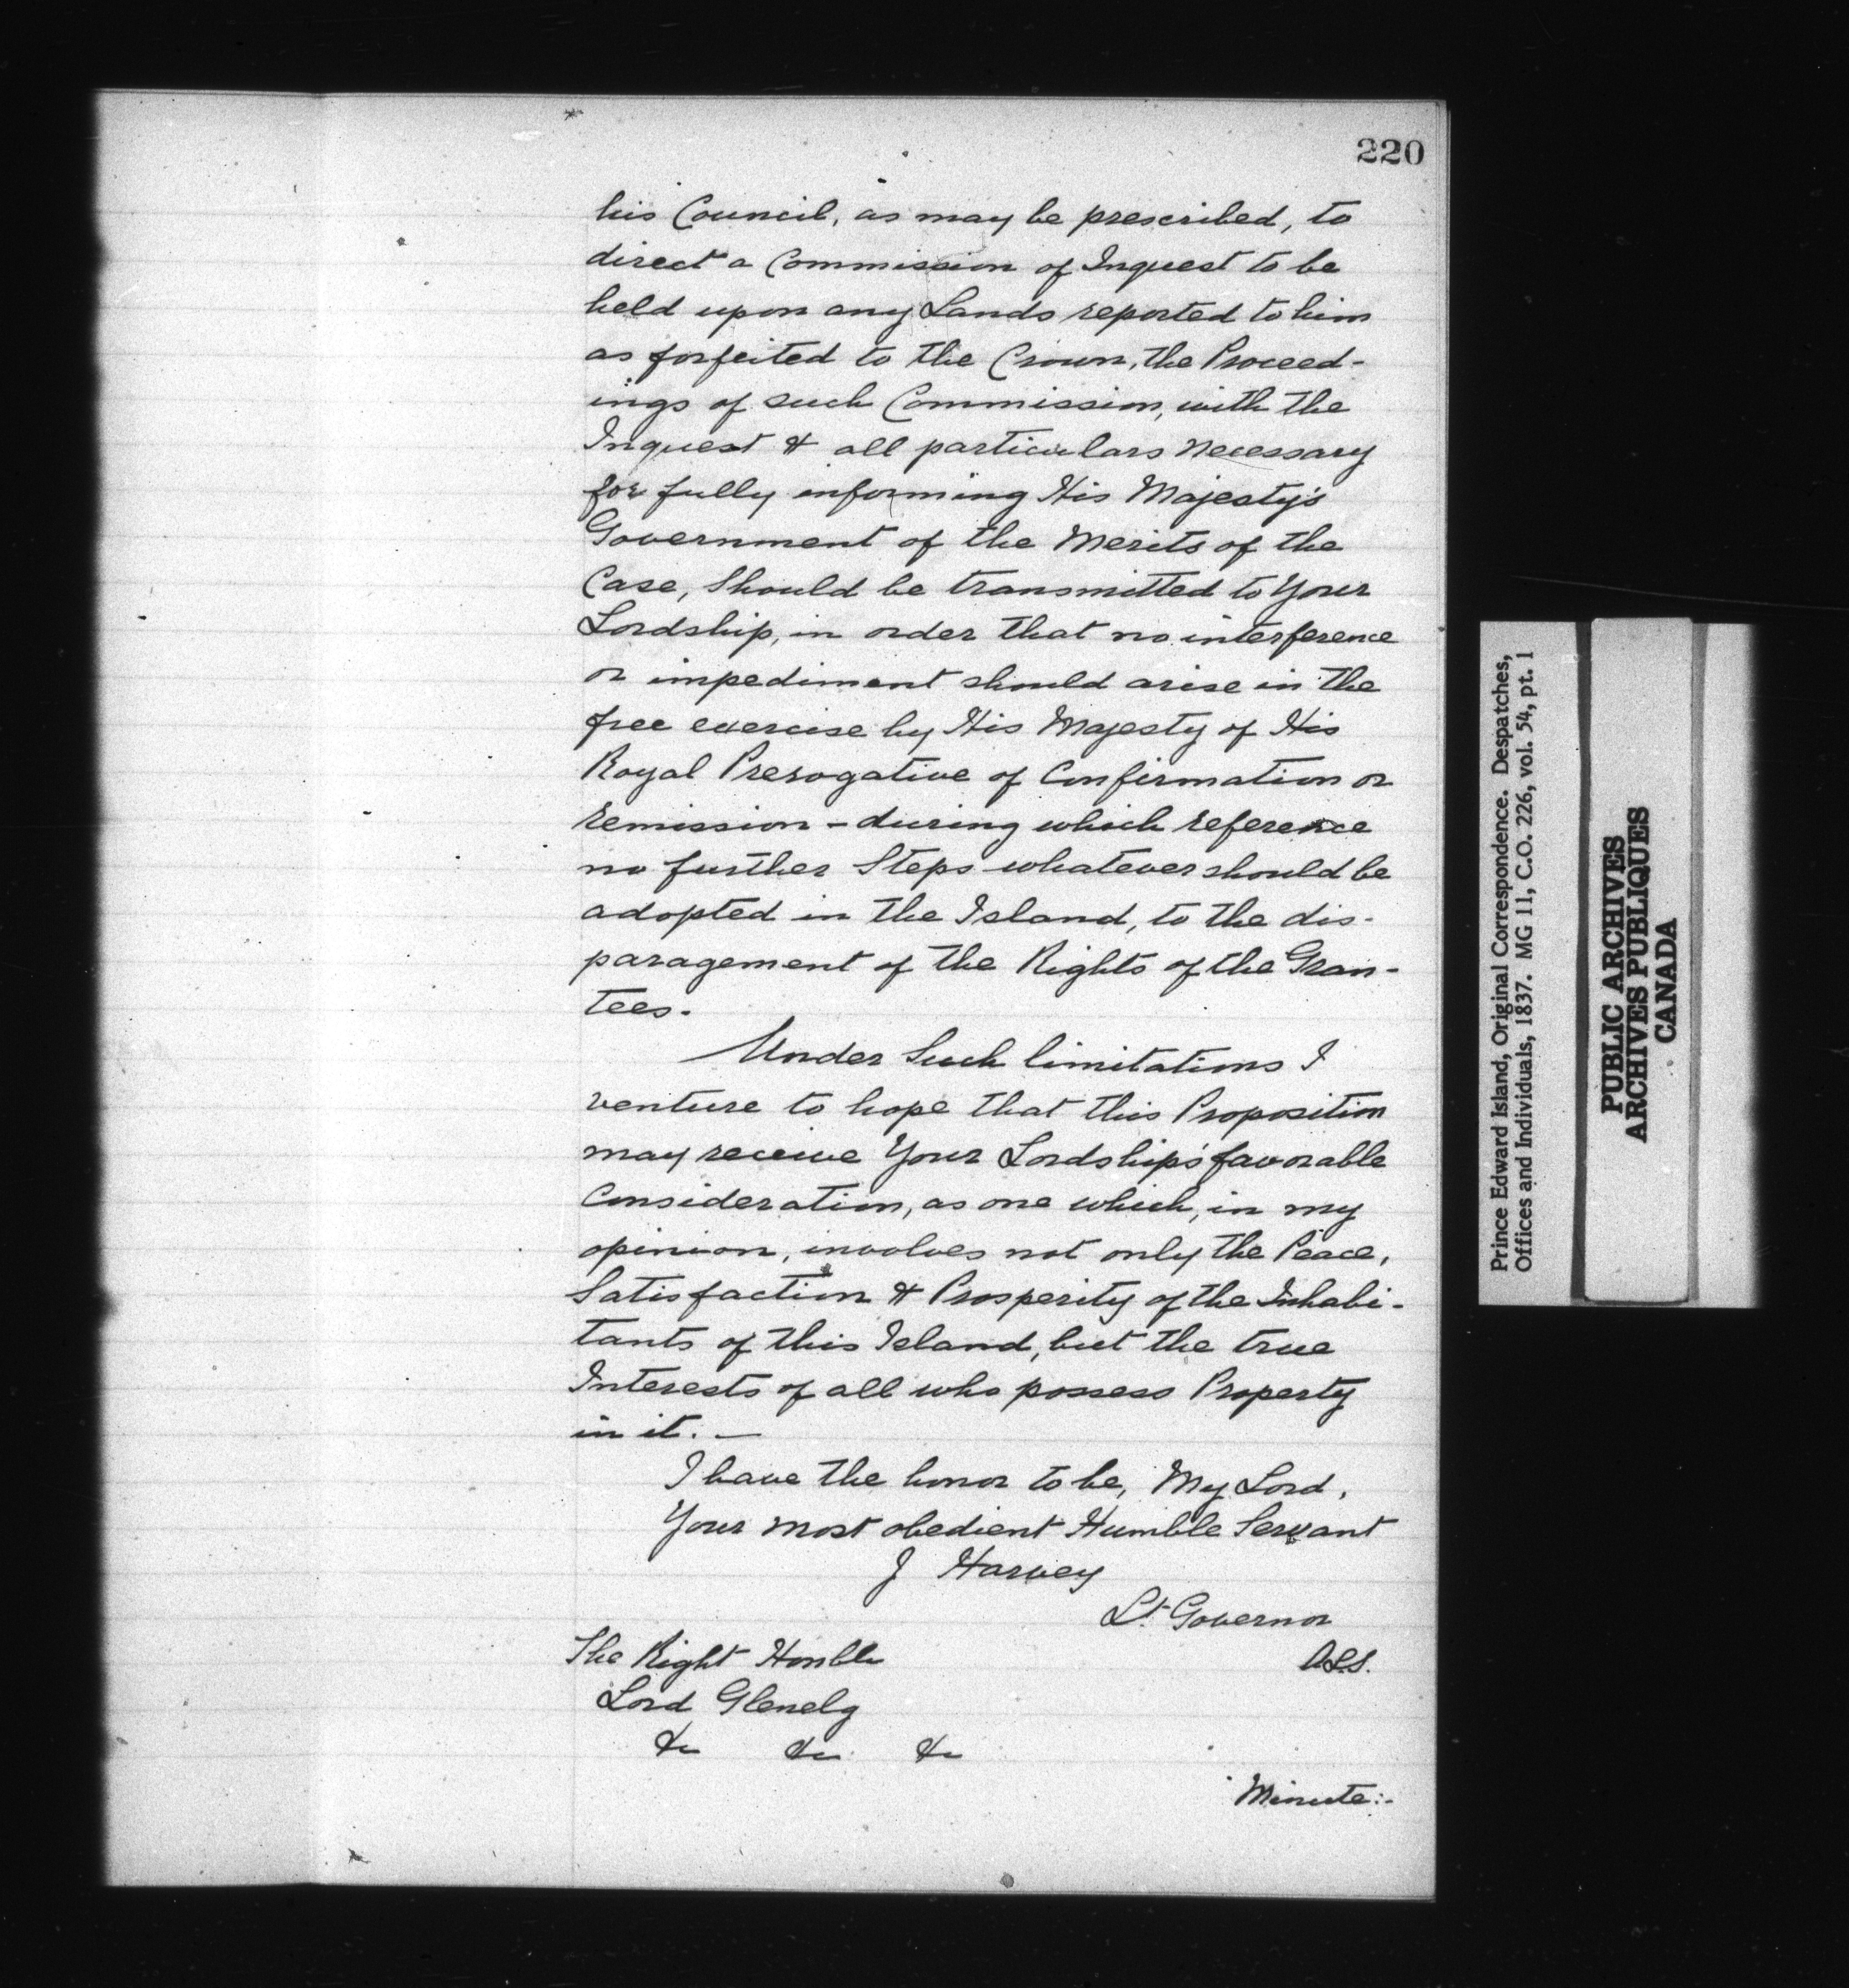 220
his Council, as may be prescribed, to
direct a Commission of Inquest to be
held upon any Lands reported to him
as forfeited to the Crown, the Proceed-
ings of such Commission, with the
Inquest & all particulars necessary
for fully informing His Majesty's
Government of the Merits of the
Case, Should be transmitted to Your
Lordship, in order that no interference
or impediment should arise in the
free exercise by His Majesty of His
Royal Prerogative of Confirmation or
Remission - during which reference
no further Steps whatever should be
adopted in the Island, to the dis-
paragement of the Rights of the Gran-
tees.
Under Such limitations I
venture to hope that this Proposition
may receive Your Lordship's favorable
Consideration, as one which, in my
opinion, involves not only the Peace,
Satisfaction & Prosperity of the Inhabi-
tants of this Island, but the true
Interests of all who possess Property
in it. —
I have the honor to be, My Lord,
Your most obedient Humble Servant
J Harvey
Lt. Governor
The Right Honble
A.L.S.
Lord Glenelg
&c &c &c
Minute:-
Prince Edward Island, Original Correspondence. Despatches,
Offices and Individuals, 1837. MG 11, C.O. 226, vol. 54, pt. 1
PUBLIC ARCHIVES
ARCHIVES PUBLIQUES
CANADA